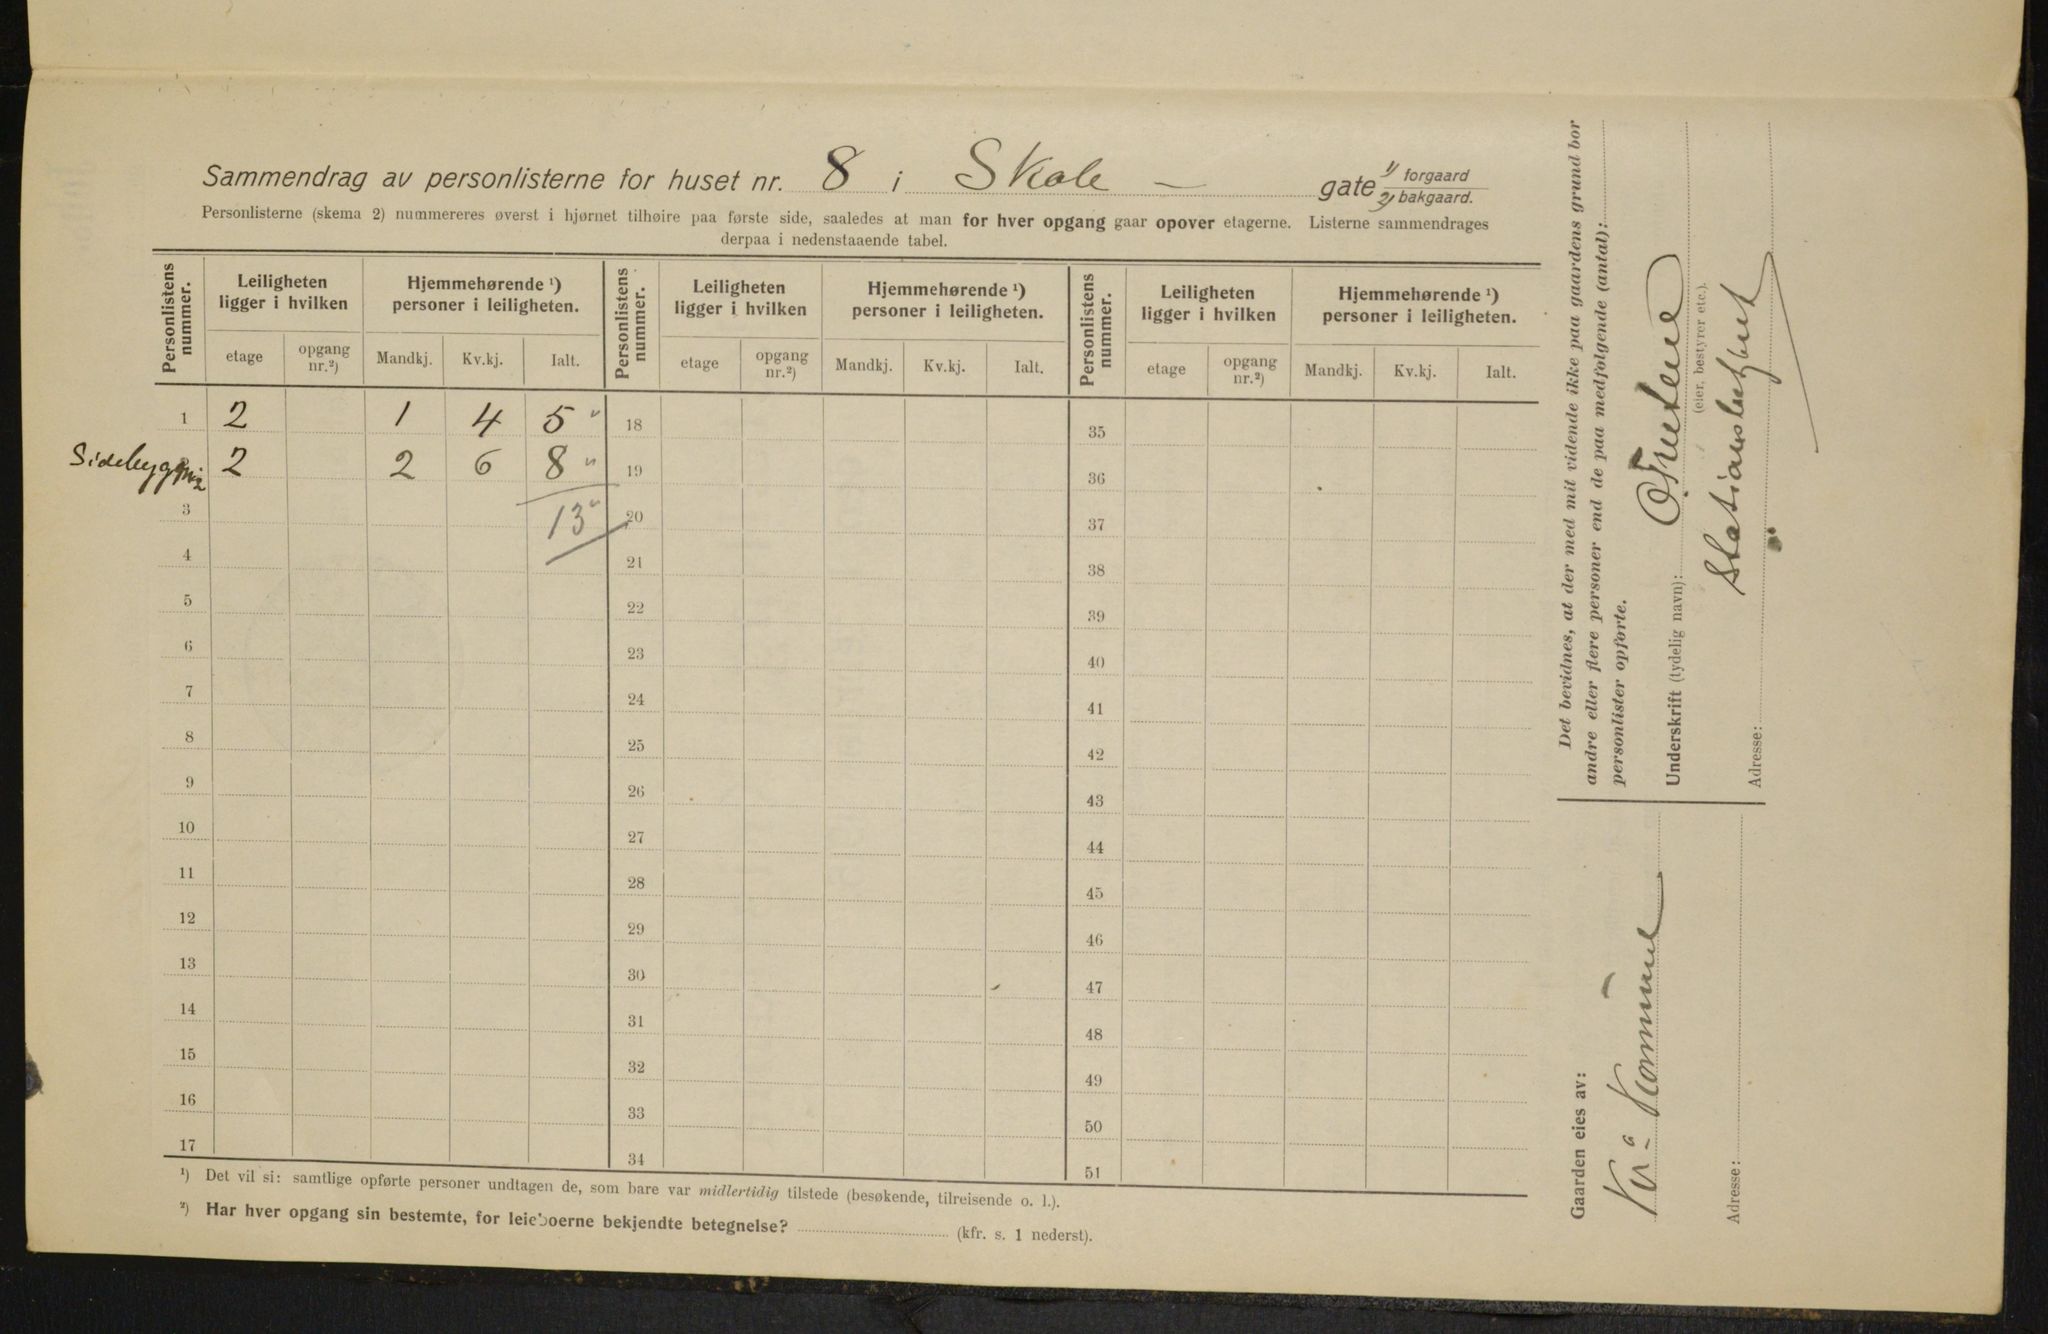 Sammendrag av personlisterne for huset nr. 8 i Skole - gate 1) forgaard 2) bakgaard.
Personlisterne (skema 2) nummereres øverst i hjørnet tilhøire paa første side, saaledes at man for hver opgang gaar opover etagerne. Listerne sammendrages
derpaa i nedenstaaende tabel.
Personlistens nummer. Leiligheten ligger i hvilken Hjemmehørende ¹) personer i leiligheten. Personlistens nummer. Leiligheten ligger i hvilken Hjemmehørende ¹) personer i leiligheten. Personlistens nummer. Leiligheten ligger i hvilken Hjemmehørende ¹) personer i leiligheten.
etage opgang nr.²) Mandkj. Kv.kj. Ialt. etage opgang nr.²) Mandkj. Kv.kj. Ialt. etage opgang nr.²) Mandkj. Kv.kj. Ialt.
1 2 1 4 5 18 35
2 2 6 8 19 36
3 13 20 37
4 21 38
5 22 39
6 23 40
7 24 41
8 25 42
9 26 43
10 27 44
11 28 45
12 29 46
13 30 47
14 31 48
15 32 49
16 33 50
17 34 51
¹) Det vil si: samtlige opførte personer undtagen de, som bare var midlertidig tilstede (besøkende, tilreisende o. l.).
²) Har hver opgang sin bestemte, for leieboerne bekjendte betegnelse? (kfr. s. 1 nederst).
Det bevidnes, at der med mit vidende ikke paa gaardens grund bor
andre eller flere personer end de paa medfølgende (antal):
personlister opførte.
Underskrift (tydelig navn):
(eier, bestyrer etc.).
Adresse:
Gaarden eies av:
Kra Kommune
Adresse: